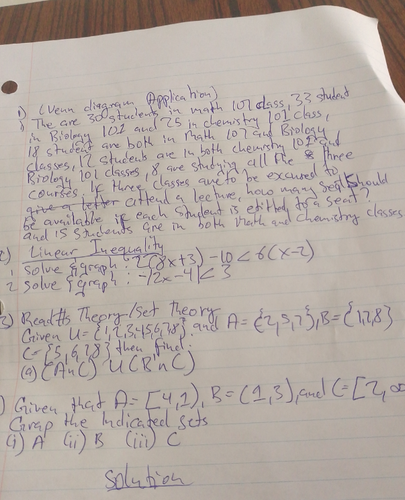 1) (Venn diagram Application)
The are 30 students in math 107 class, 33 student
in Biology 101 and 25 in chemistry 101 class,
18 student are both in math 107 and Biology
classes, 12 students are in both chemistry 101 and
Biology 101 classes, 8 are studying all the three
courses. If three classes are to be excused to
give a letter attend a lecture, how many seats should
be available if each student is entitled to a seat?
and 15 students are in both math and chemistry classes
2) Linear Inequality
1. solve & graph: 2(8x+3)-10<6(x-2)
2 solve & graph: -|2x-4|<3
3) Theory/set Theory
Given U={1,2,3,4,5,6,7,8}, and A={2,5,7}, B={1,7,8}
C={5,6,7,8} then find:
(a) (A∩C) U (B∩C)
) Given that A=[4,1), B=(1,3), and C=[2,∞
Grap the Indicated sets
(i) A (ii) B (iii) C
Solution